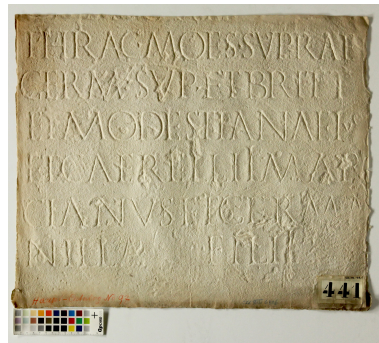 THRAC·MOES·SVP·RAE
GERM·SVP·ET·BRITT
ET MODESTIANAEIVS
ET CAERELLII MAR
CIANVS ET GERMA
NILLA FILII
441